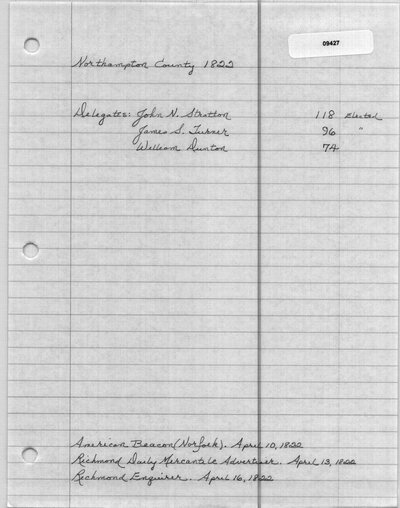 09427
Northampton County 1822
Delegates: John N. Stratton 118 Elected
James S. Turner 96 "
William Dunton 74
American Beacon (Norfolk). April 10, 1822
Richmond Daily Mercantile Advertiser. April 13, 1822
Richmond Enquirer. April 16, 1822